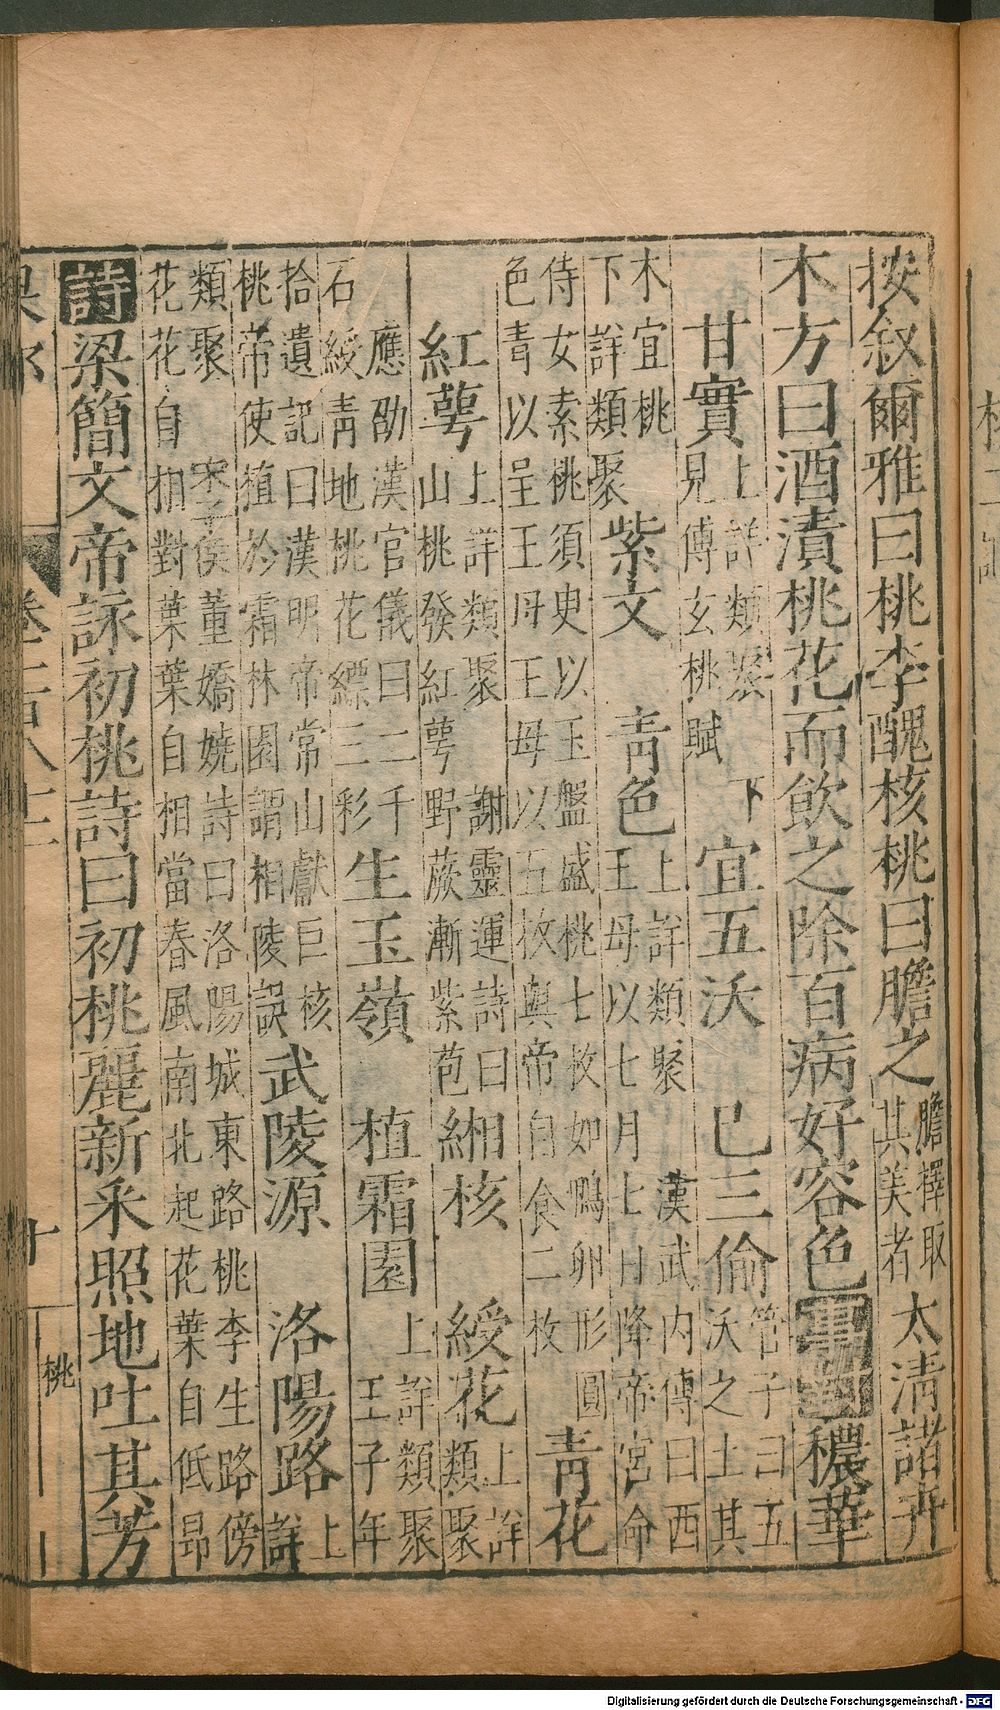 按叙爾雅曰桃李醜核桃曰膽之膽擇取
其美者太淸諸卉
木方曰酒漬桃花而飲之除百病好容色事對穠華
甘實上詳類聚下
見傅玄桃賦宜五沃 巳三偷管子曰五
沃之土其
木宜桃
下詳類聚紫文 靑色上詳類聚 漢武内傳曰西
王母以七月七日降帝宮命
侍女素桃須臾以玉盤盛桃七枚如鴨卵形圓
色靑以呈王母王母以五枚與帝自食二枚靑花
紅萼上詳類聚 謝靈運詩曰
山桃發紅萼野蕨漸紫苞緗核 綬花上詳
類聚
應劭漢官儀曰二千
石綬靑地桃花縹三彩生玉嶺 植霜園上詳類聚
王子年
拾遺記曰漢明帝常山獻巨核
桃帝使植於霜林園謂相陵誤武陵源 洛陽路上
詳
類聚 宋子侯董嬌嬈詩曰洛陽城東路桃李生路傍
花花自相對葉葉自相當春風南北起花葉自低昂
詩梁簡文帝詠初桃詩曰初桃麗新釆照地吐其芳
十 桃
Digitalisierung gefördert durch die Deutsche Forschungsgemeinschaft - DFG